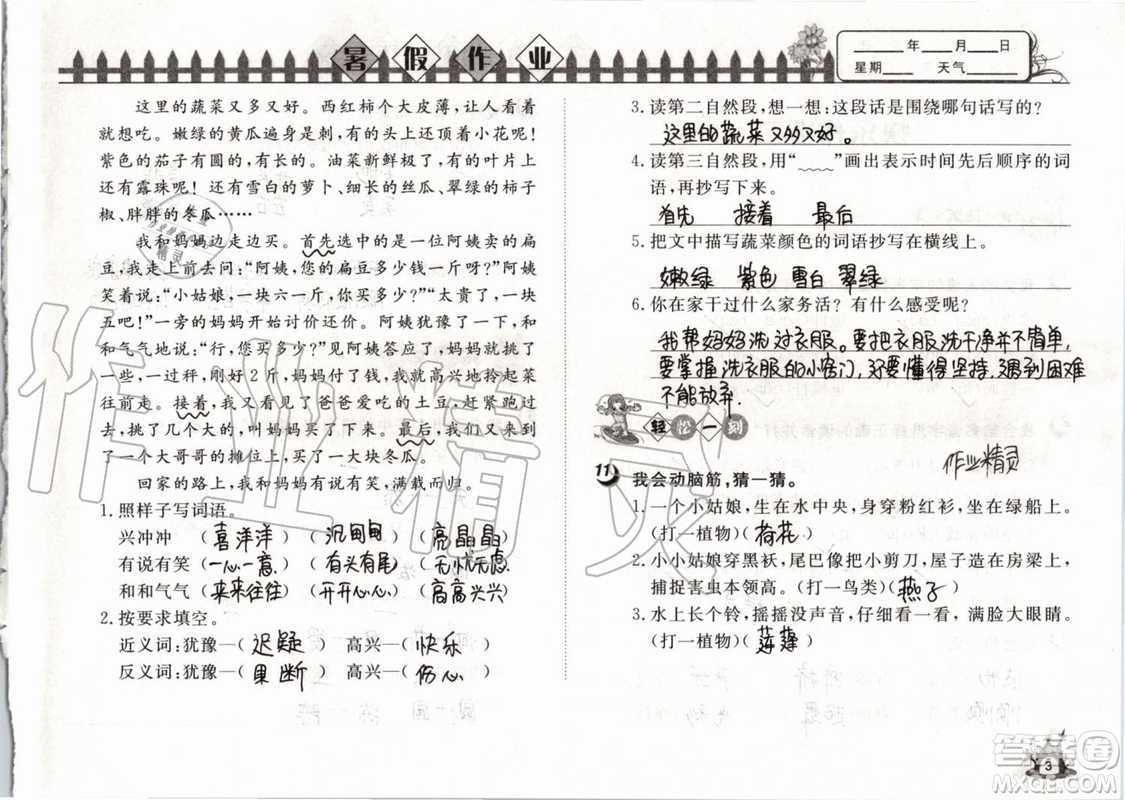 暑假作业
____年____月____日
星期____ 天气____
这里的蔬菜又多又好。西红柿个大皮薄,让人看着
就想吃。嫩绿的黄瓜遍身是刺,有的头上顶着小花呢!
紫色的茄子有圆的,有长的。油菜新鲜极了,有的叶片上
还有露珠呢!还有雪白的萝卜、细长的丝瓜、翠绿的柿子
椒、胖胖的冬瓜……
我和妈妈边走边买。首先选中的是一位阿姨卖的扁
豆,我走上前去问:“阿姨,您的扁豆多少钱一斤呀?”阿姨
笑着说:“小姑娘,一块六一斤,你买多少?”“太贵了,一块
五吧!”一旁的妈妈开始讨价还价。阿姨犹豫了一下,还
和和气气地说:“行,您买多少?”我见阿姨答应了,妈妈就挑了
一些,过一过秤,刚好2斤,妈妈付了钱,我就高兴地拎起菜
往前走。接着,我又看见了爸爸爱吃的土豆,赶紧跑过去
挑了几个大的,叫妈妈买了下来。最后,我们在
一个大哥哥的摊位上,买了一大块冬瓜。
回家的路上,我和妈妈有说有笑,满载而归。
1. 照样子写词语。
兴冲冲 (喜洋洋) (沉甸甸) (亮晶晶)
有说有笑 (一心一意) (有头有尾) (无忧无虑)
和和气气 (来来往往) (开开心心) (高高兴兴)
2. 按要求填空。
近义词:犹豫—(迟疑) 高兴—(快乐)
反义词:犹豫—(果断) 高兴—(伤心)
3. 读第二自然段,想一想:这段话是围绕哪句话写的?
这里的蔬菜又多又好。
4. 读第三自然段,用“﹏﹏”画出表示时间先后顺序的词
语,再抄写下来。
首先 接着 最后
5. 把文中描写蔬菜颜色的词语抄写在横线上。
嫩绿 紫色 雪白 翠绿
6. 你在家干过什么家务活?有什么感受呢?
我帮妈妈洗过衣服。要把衣服洗干净并不简单,
要掌握洗衣服的小窍门,还要懂得坚持,遇到困难
不能放弃.
轻松一刻
11 我会动脑筋,猜一猜。
作业精灵
1. 一个小姑娘,生在水中央,身穿粉红衫,坐在绿船上。
(打一植物)(荷花)
2. 小小姑娘穿黑袄,尾巴像把小剪刀,屋子造在房梁上,
捕捉害虫本领高。(打一鸟类)(燕子)
3. 水上长个铃,摇摇没声音,仔细看一看,满脸大眼睛。
(打一植物)(莲蓬)
作业精灵
答案圈
MXQE.COM
3